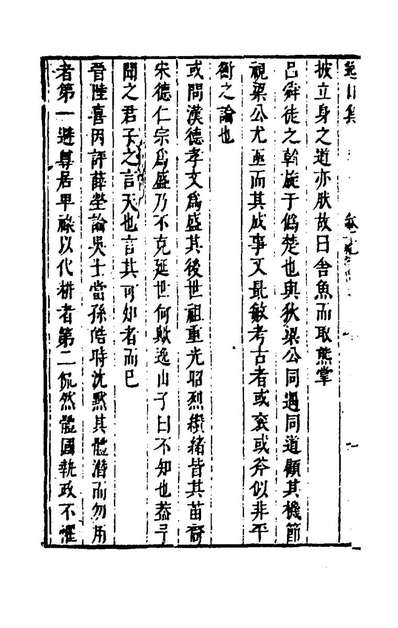 彼立身之道亦肰故曰舍魚而取熊掌
呂舜徒之斡旋于僞楚也與狄梁公同遇同道顧其機節
視梁公尤亟而其成事又最敏考古者或衮或斧似非平
衡之論也
或問漢德孝文爲盛其後世祖重光昭烈纘緒皆其苗裔
宋德仁宗爲盛乃不克延世何歟逸山子曰不知也葢吾
聞之君子之言天也言其可知者而已
晉陸喜丙評薛瑩論吳士當孫皓時沈默其體潛而勿用
者第一避尊居卑祿以代耕者第二侃然體國執政不懼